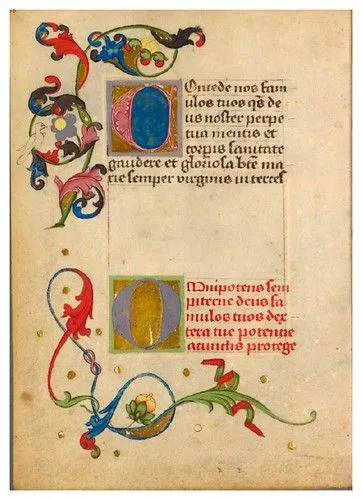 Concede nos fam
ulos tuos q̄s de
us noster perpe
tua mentis et
corpis sanitate
gaudere et gloriosa bt̄e ma
rie semper virginis interces
Omnipotens sem
piterne deus fa
mulos tuos dex
tera tue potencie
acunctis protege